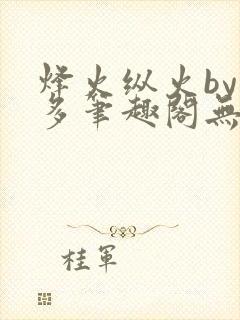 烽火纵火by
多筆趣閣無
桂軍